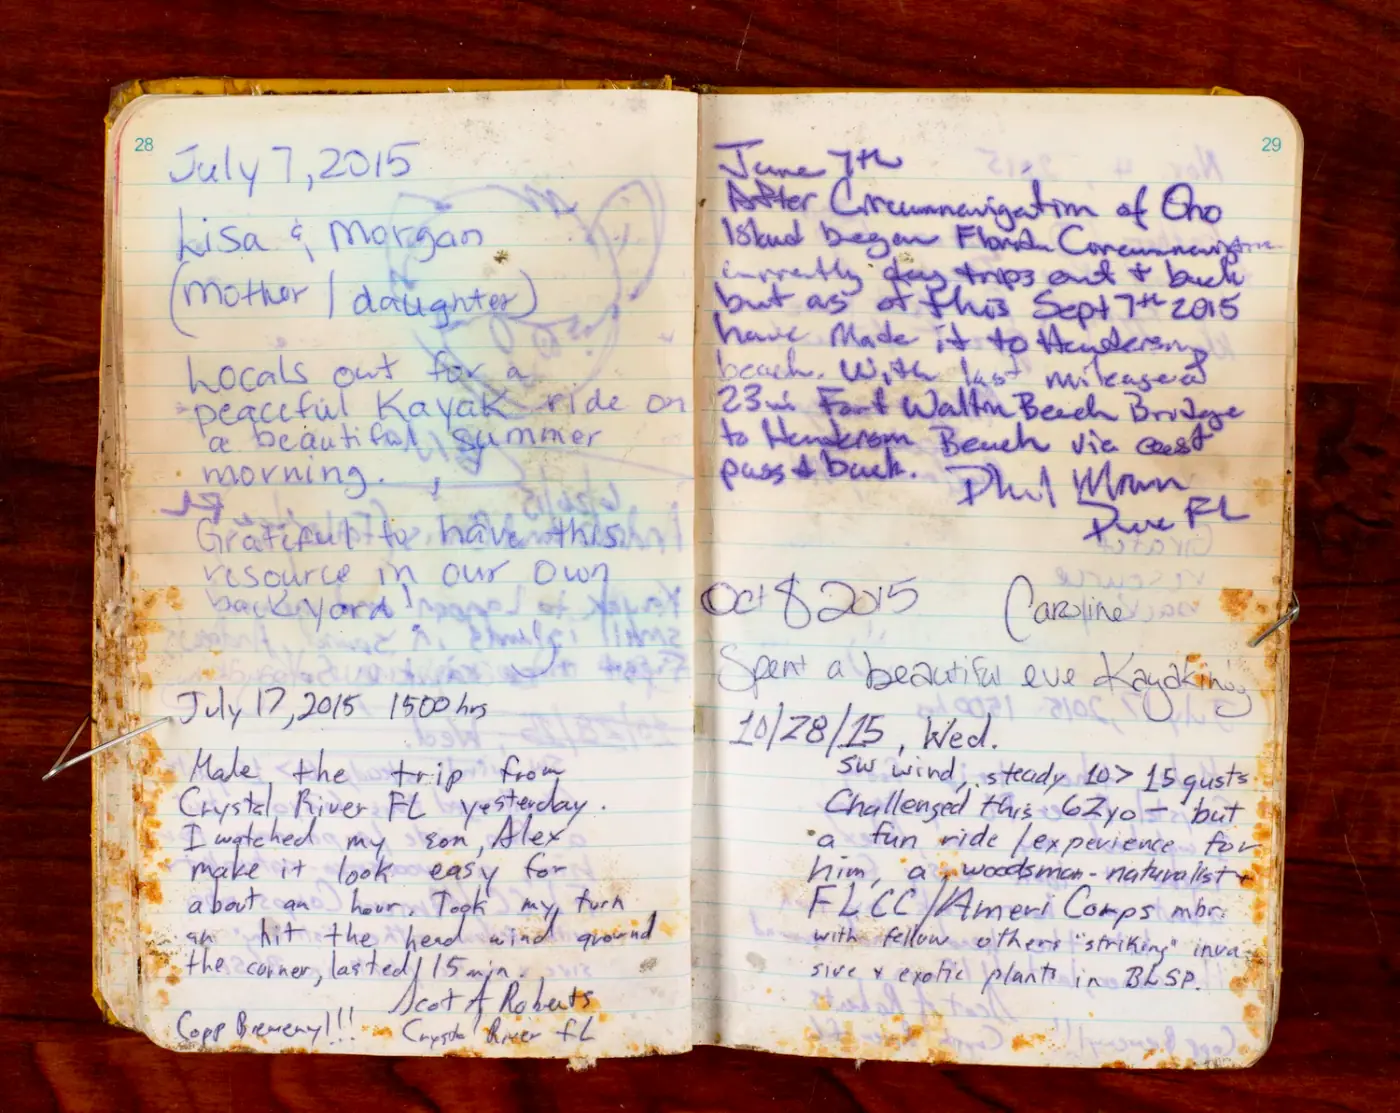 28
July 7, 2015
Lisa & Morgan
(Mother / daughter)
Locals out for a
peaceful Kayak ride on
a beautiful, summer
morning.
Grateful to have this
resource in our own
backyard!
July 17, 2015 1500 hrs
Made the trip from
Crystal River FL yesterday.
I watched my son, Alex
make it look easy for
about an hour. Took my turn
an hit the head wind around
the corner, lasted 15 min.
Scot A Roberts
Copp Bremeny!!! Crystal River FL
29
June 7th
After Circumnavigation of Ono
Island began Florida Circumnavigation
currently day trips out & back
but as of this Sept 7th 2015
have Made it to Henderson
beach. With last mileage of
23mi Fort Walton Beach Bridge
to Henderson Beach via east
pass & back.
FL
Oct 8 2015 Caroline
Spent a beautiful eve Kayaking
10/28/15, Wed.
SW wind, steady 10> 15 gusts
Challenged this 62yo - but
a fun ride / experience for
him, a woodsman-naturalist +
FLCC/AmeriCorps mbr.
with fellow others "striking" inva-
sive & exotic plants in BLSP.